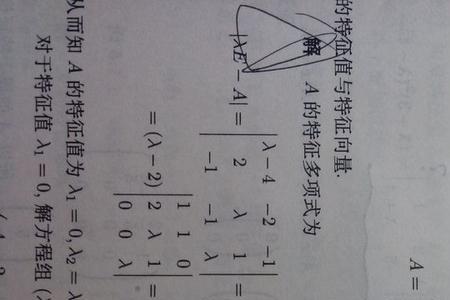 A =
的特征值与特征向量.
解 A 的特征多项式为
λ − 4 −2 −1
|λE − A| = 2 λ 1 =
−1 −1 λ
1 1 0
= (λ − 2) 2 λ 1 =
0 0 λ
从而知 A 的特征值为 λ₁ = 0, λ₂ = λ
对于特征值 λ₁ = 0, 解方程组 (